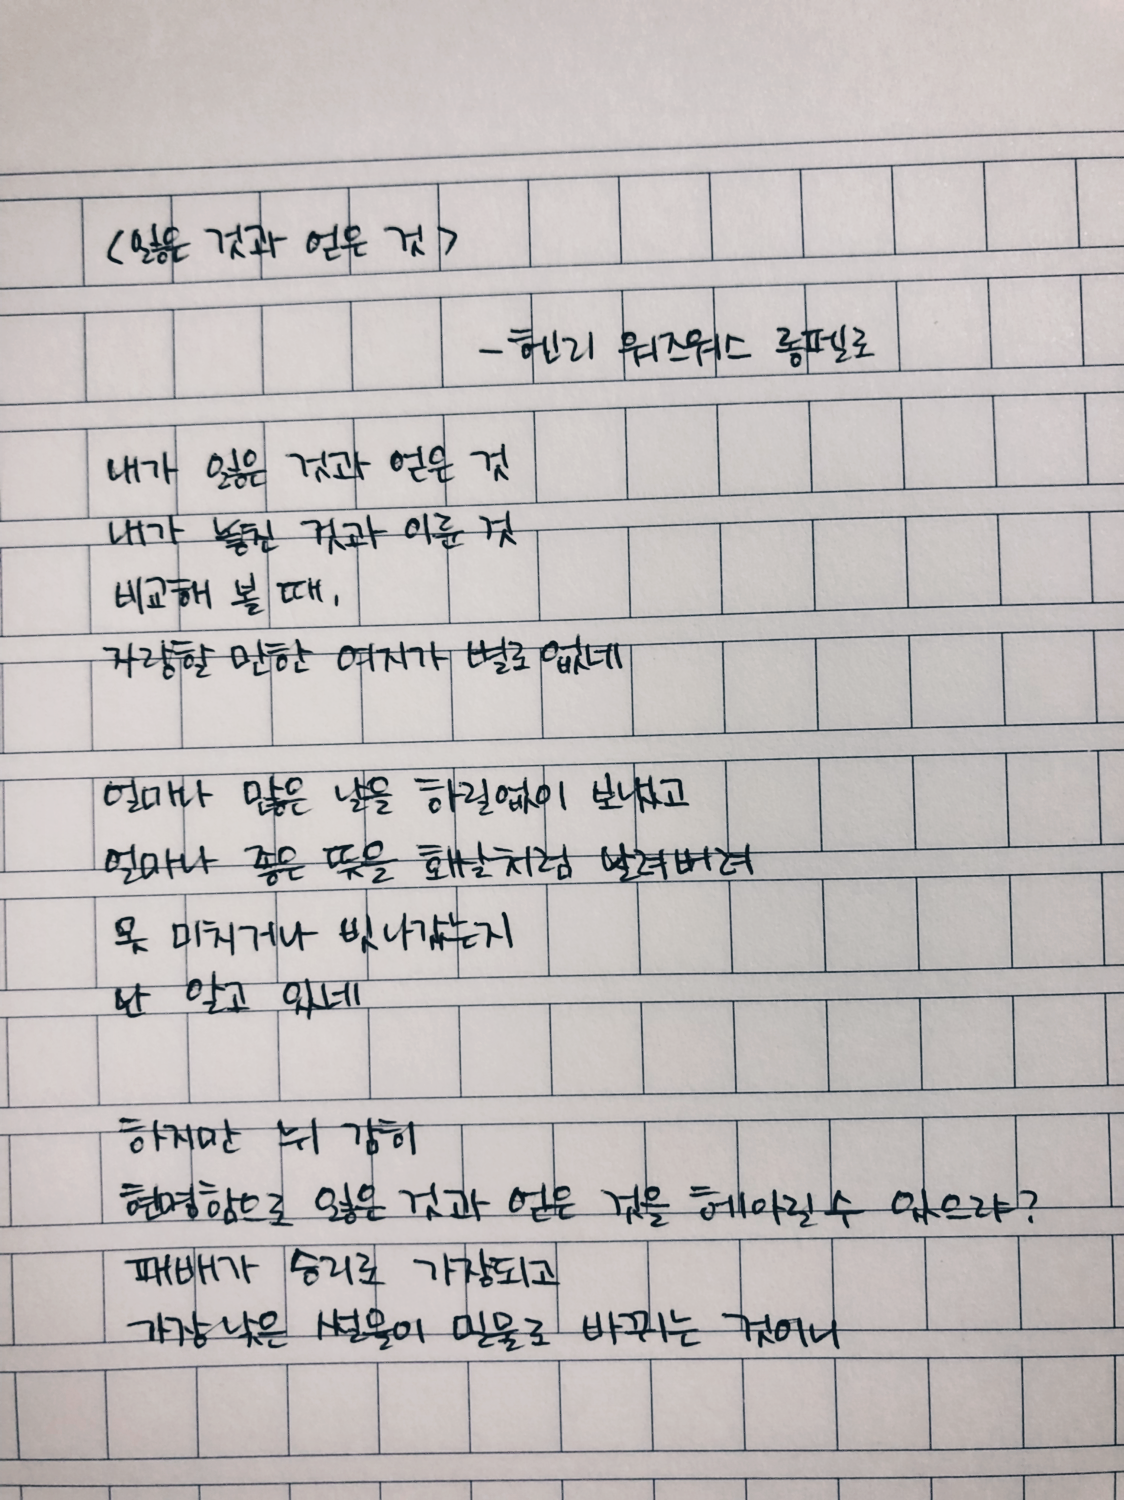 <잃은 것과 얻은 것>
- 헨리 워즈워스 롱펠로
내가 잃은 것과 얻은 것
내가 놓친 것과 이룬 것
비교해 볼 때,
자랑할 만한 여지가 별로 없네
얼마나 많은 날을 하릴없이 보냈고
얼마나 좋은 뜻을 화살처럼 날려버려
못 미치거나 빗나갔는지
난 알고 있네
하지만 뉘 감히
현명함으로 잃은 것과 얻은 것을 헤아릴 수 있으랴?
패배가 승리로 가장되고
가장 낮은 썰물이 밀물로 바뀌는 것이니